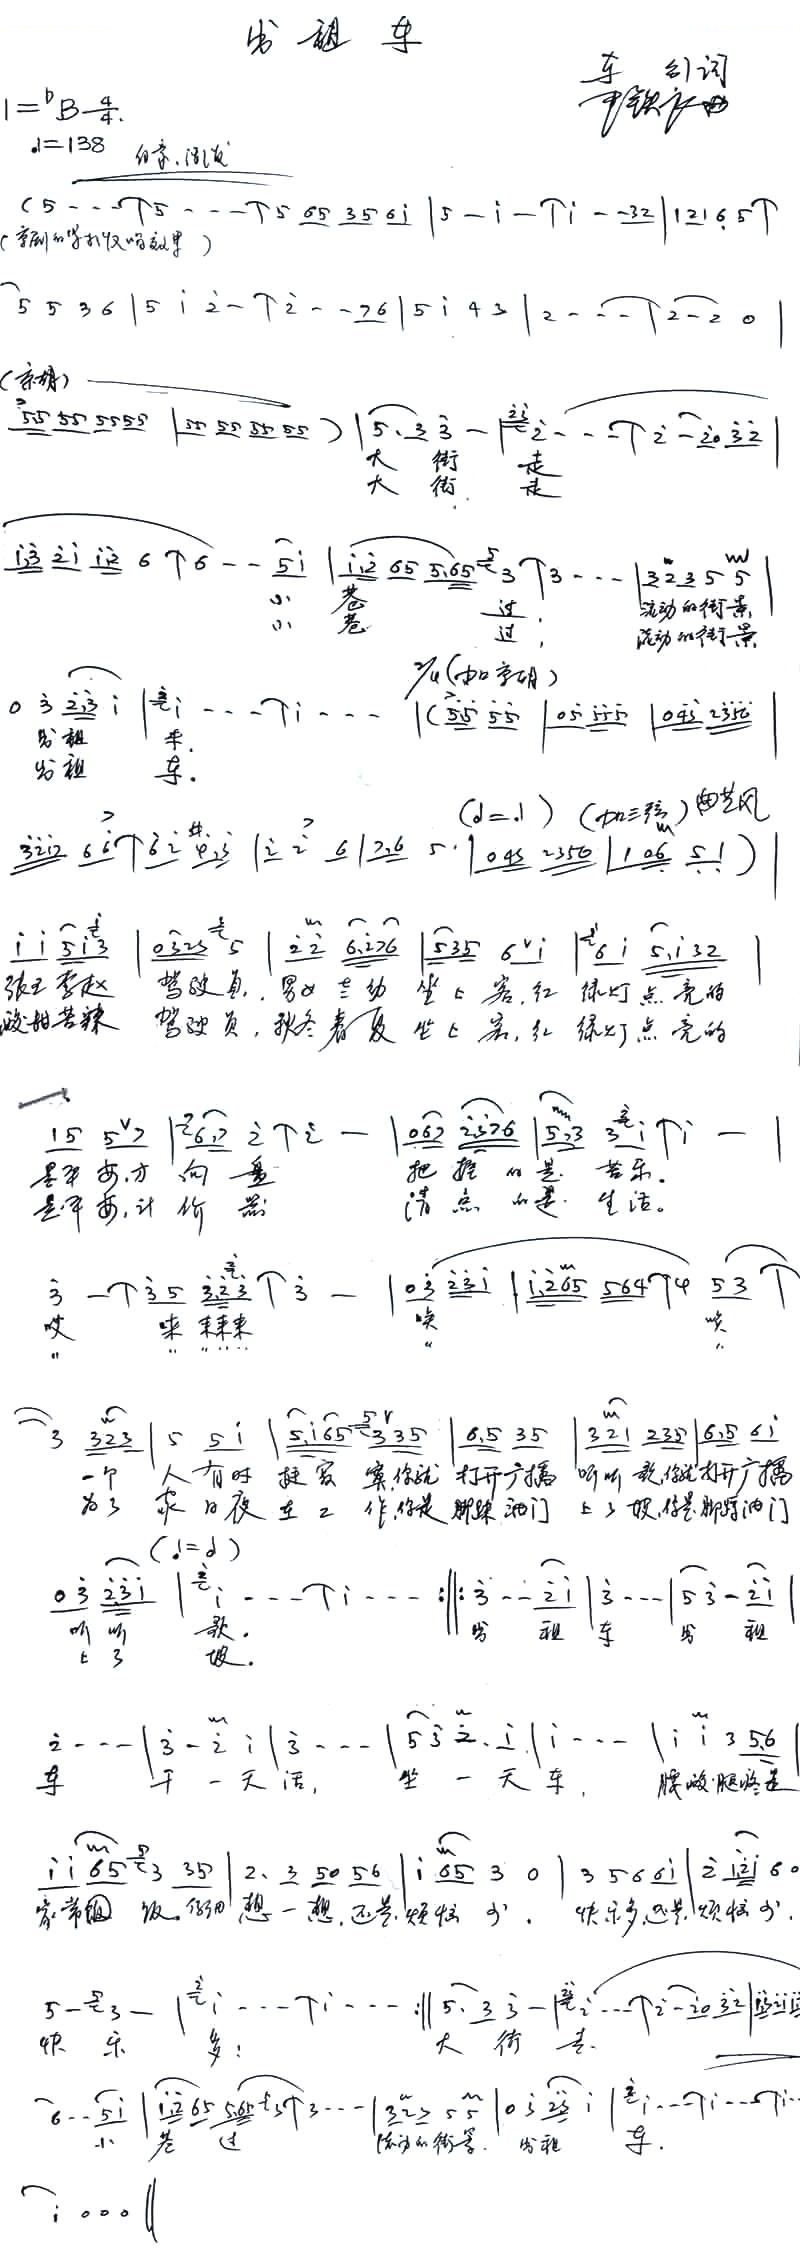 出租车
车 剑词
尹铁 曲
1=♭B 4/4
♩=138
(5 - - - | 5 - - - | 5 65 3561 | 5 - i - | i - - 32 | 1216 5 |
(京剧的 效果)
5 5 3 6 | 5 i 2 - | 2 - - 76 | 5 i 4 3 | 2 - - - | 2 - 2 0 |
(京胡)
55 55 5555 | 55 55 55 55 ) | 5. 3 3 - | 2 - - - | 2 - 20 32 |
大 街 走
大 街 走
i.3 2i i2 6 | 6 - - 5i | i.2 65 5.65 3 | 3 - - - | 3235 5 |
小 巷 过 流动的街景
小 巷 过, 流动的街景
0 3 2.3 i | i - - - | i - - - | 2/4(加京胡) (55 55 | 05 555 | 043 2356 |
出租 车.
出租 车.
(加三弦)
3212 66 | 62 4.3 | 2 2 6 | 7.6 5. | 043 2356 | 1 06 51 ) |
i i 5i3 | 0323 5 | 22 6.276 | 535 6 i | 6 i 5.i32 |
张王李赵 驾驶员, 男女老幼 坐上客, 红 绿灯点亮的
酸甜苦辣 驾驶员, 秋冬春夏 坐上客, 红 绿灯点亮的
15 5 7 | 6.7 2 | 2 - | 067 2376 | 5.3 3 i | i - |
是平安, 方向盘 把握的是 苦乐.
是平安, 计价器 清点的是 生活。
3 - | 35 3.23 | 3 - | 03 23i | i.265 564 | 4 53 |
哎 来来来来 唉 唉
" " " " " " "
3 323 | 5 5i | 5.i65 335 | 6.5 35 | 32i 235 | 6.5 6i
一个 人有时 挺寂寞, 你就 打开广播 听听歌, 你就 打开广播
为了 家日夜 在工作, 你是 脚踩油门 上了坡, 你是 脚踩油门
(♩=d)
03 23i | i - - - | i - - - :‖: 3 - - 2i | 3 - - - | 5 3 - 2i |
听听 歌. 出 租 车 出 租
上了 坡.
2 - - - | 3 - 2 i | 3 - - - | 5 3 2. i | i - - - | i i 3 5.6 |
车 干一天活, 坐一天车, 腰酸腿疼是
i i 65 3 35 | 2. 3 50 56 | i 65 3 0 | 3 5 6 6i | 2 i2i 6 0
家常 饭. 仔细 想一想, 还是 烦恼少. 快乐多, 还是 烦恼少.
5 - 3 - | i - - - | i - - - :‖ 5. 3 3 - | 2 - - - | 2 - 20 32 |
快 乐 多! 大 街 走.
6 - - 5i | i.2 65 5.65 3 | 3 - - - | 323 5 5 | 0 3 23 i | i - - - | i - - - | i - -
小 巷 过 流动的街景. 出租 车.
i 0 0 0 ‖